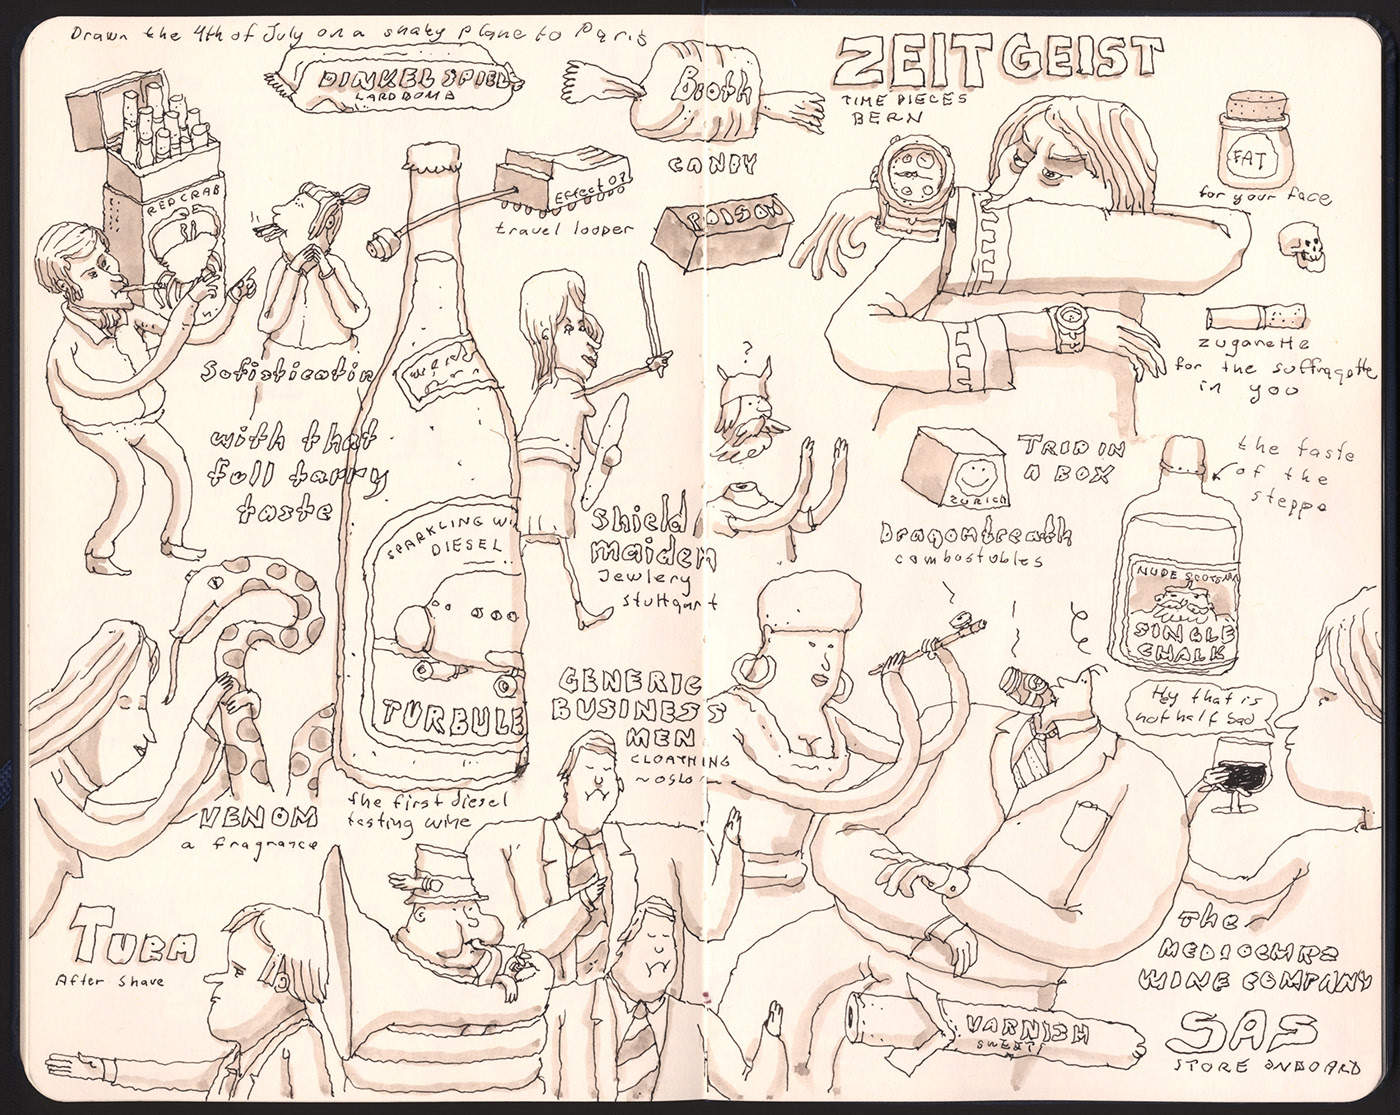 Drawn the 4th of July on a shaky plane to Paris
DINKEL SPIEL
LARD BOMB
Broth
CANDY
ZEITGEIST
TIME PIECES
BERN
FAT
for your face
RED CRAB
Effect 03
travel looper
POISON
zuganette
for the suffragette
in you
Sofisticatin
with that
full tarry
taste
?
TRIP IN
A BOX
ZURICH
the taste
of the
steppe
Dragombreath
combustubles
SPARKLING WI
DIESEL
TURBULE
the first diesel
tasting wine
Shield
maiden
Jewlery
stuttgart
NUDE SCOTSMAN
SINGLE
CHALK
Hey that is
not half bad
GENERIC
BUSINESS
MEN
CLOATHING
~OSLO~
VENOM
a fragrance
TUBA
After Shave
The
MEDIOCHRE
WINE COMPANY
VARNISH
SWEETS
SAS
STORE ONBOARD